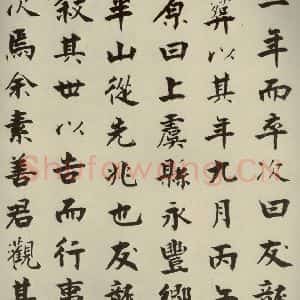 一年而卒次曰友龍
葬以其年九月丙午
原曰上虞縣永豐鄉
半山從先兆也友龍
敘其世以告而行事
次焉余素善君觀其
Shufawang.CN